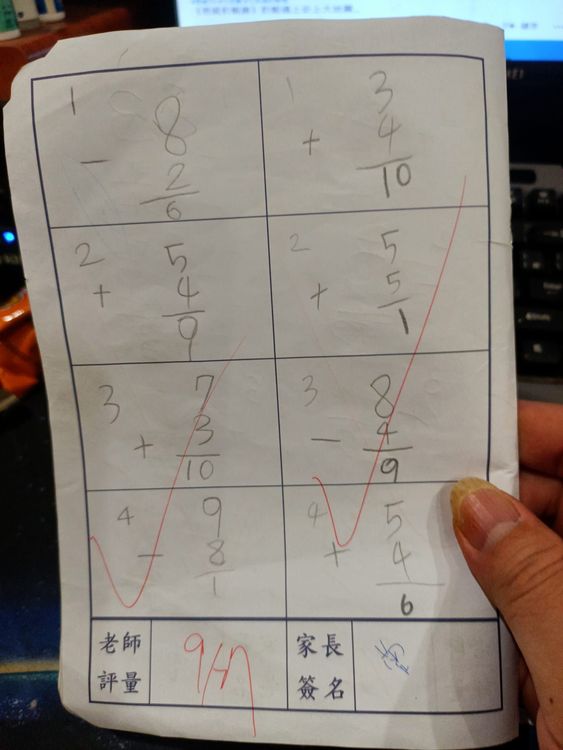 1
8
- 2
6
1
3
+ 4
10
2
5
+ 4
9
2
5
+ 5
1
3
7
+ 3
10
3
8
- 4
9
4
9
- 8
1
4
5
+ 4
6
老師
評量
家長
簽名